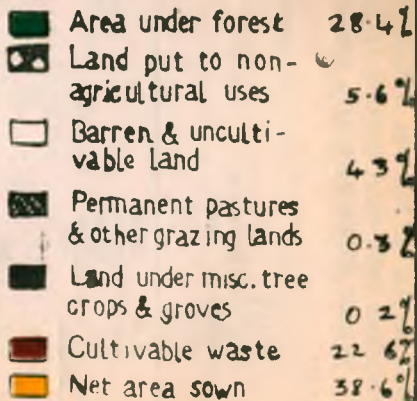 Area under forest 28.4%
Land put to non-
agricultural uses 5.6%
Barren & unculti-
vable land 4 3%
Permanent pastures
& other grazing lands 0.3%
Land under misc. tree
crops & groves 0 2%
Cultivable waste 22 6%
Net area sown 38.6%